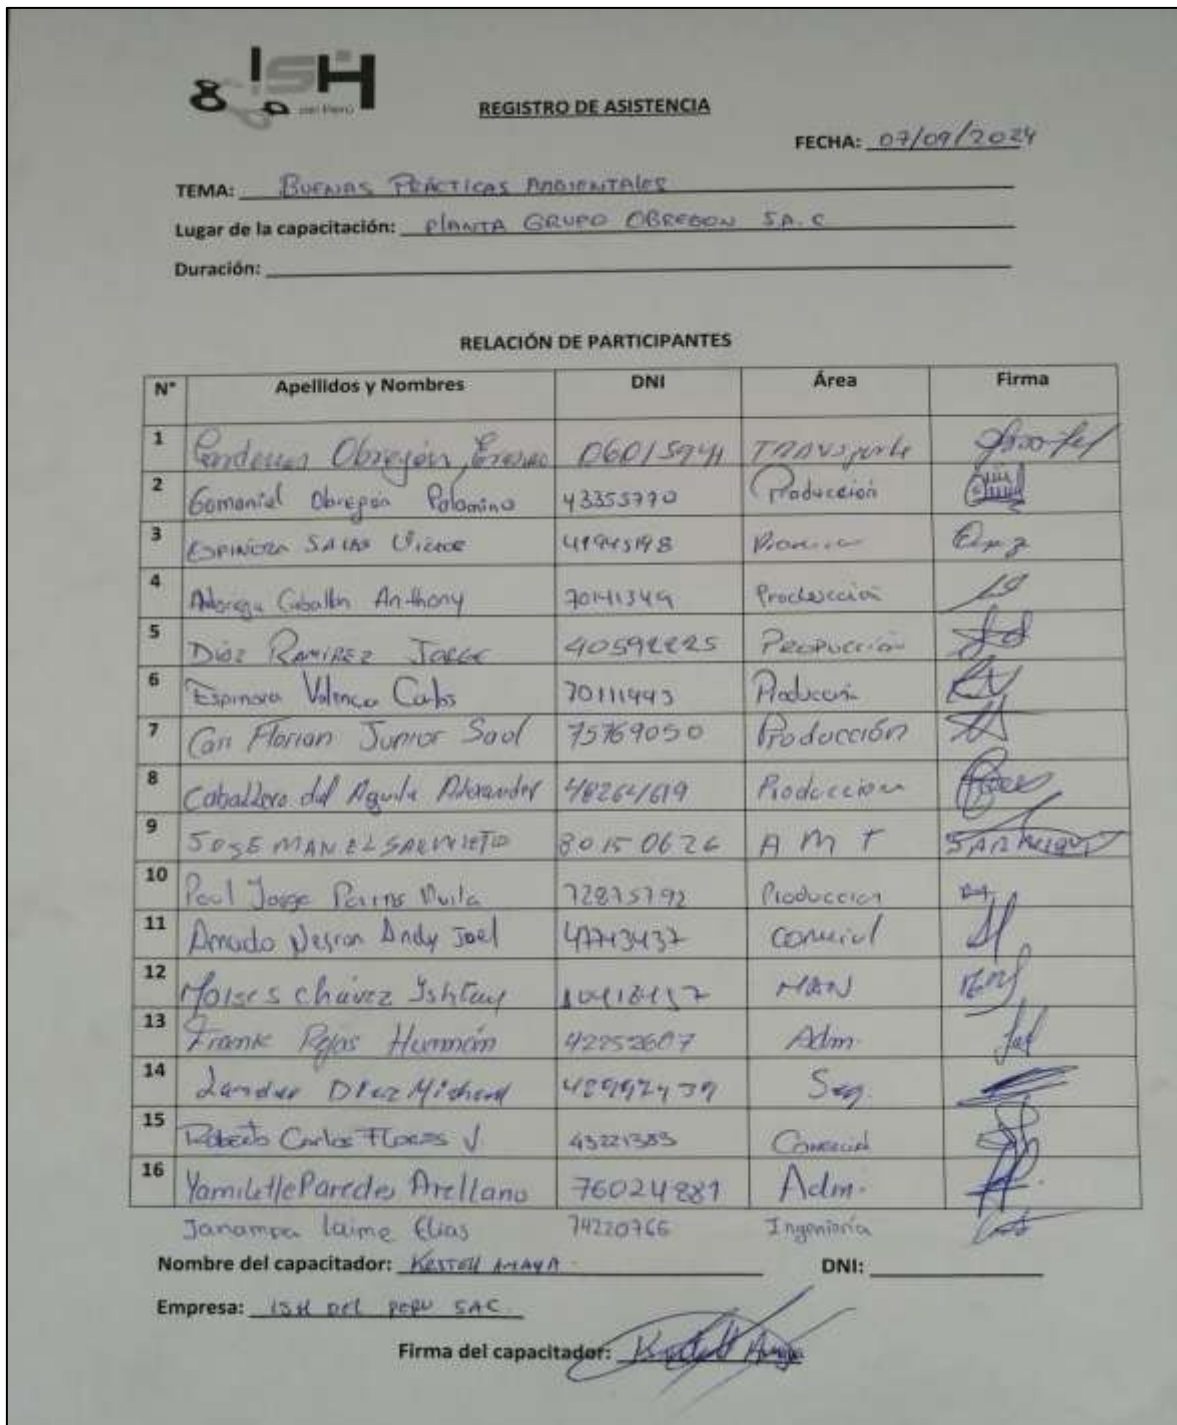 ISH
del Perú
REGISTRO DE ASISTENCIA
FECHA: 07/09/2024
TEMA: BUENAS PRÁCTICAS AMBIENTALES
Lugar de la capacitación: PLANTA GRUPO OBREGON S.A.C
Duración:
RELACIÓN DE PARTICIPANTES
N° Apellidos y Nombres DNI Área Firma
1 Obregón, Transporte
2 Obregón Palomino 43353770 Producción
3 ESPINOZA SALAS Victor
4 Anthony 70141349 Producción
5 Díaz RAMIREZ JORGE 40592225 PRODUCCIÓN
6 Espinoza Valencia Carlos 70111443 Producción
7 Cari Florian Junior Saol 75769050 Producción
8 Caballero del Aguila Alexander 48264619 Produccion
9 JOSE MANEL SARMIETO 80150626 A M T
10 Jorge 72875792 Produccion
11 Amado Negron Andy Joel 47743437
12 Moises Chávez MAN
13 Frank Rojas Humnán 42252607 Adm.
14 Seg.
15 Roberto Carlos FLORES V 43221383 Comercial
16 Yamiletle Paredes Arellano 76024881 Adm.
Janampa Laime Elias 74220766 Ingeniería
Nombre del capacitador: AMAYA DNI:
Empresa: ISH DEL PERU SAC.
Firma del capacitador: